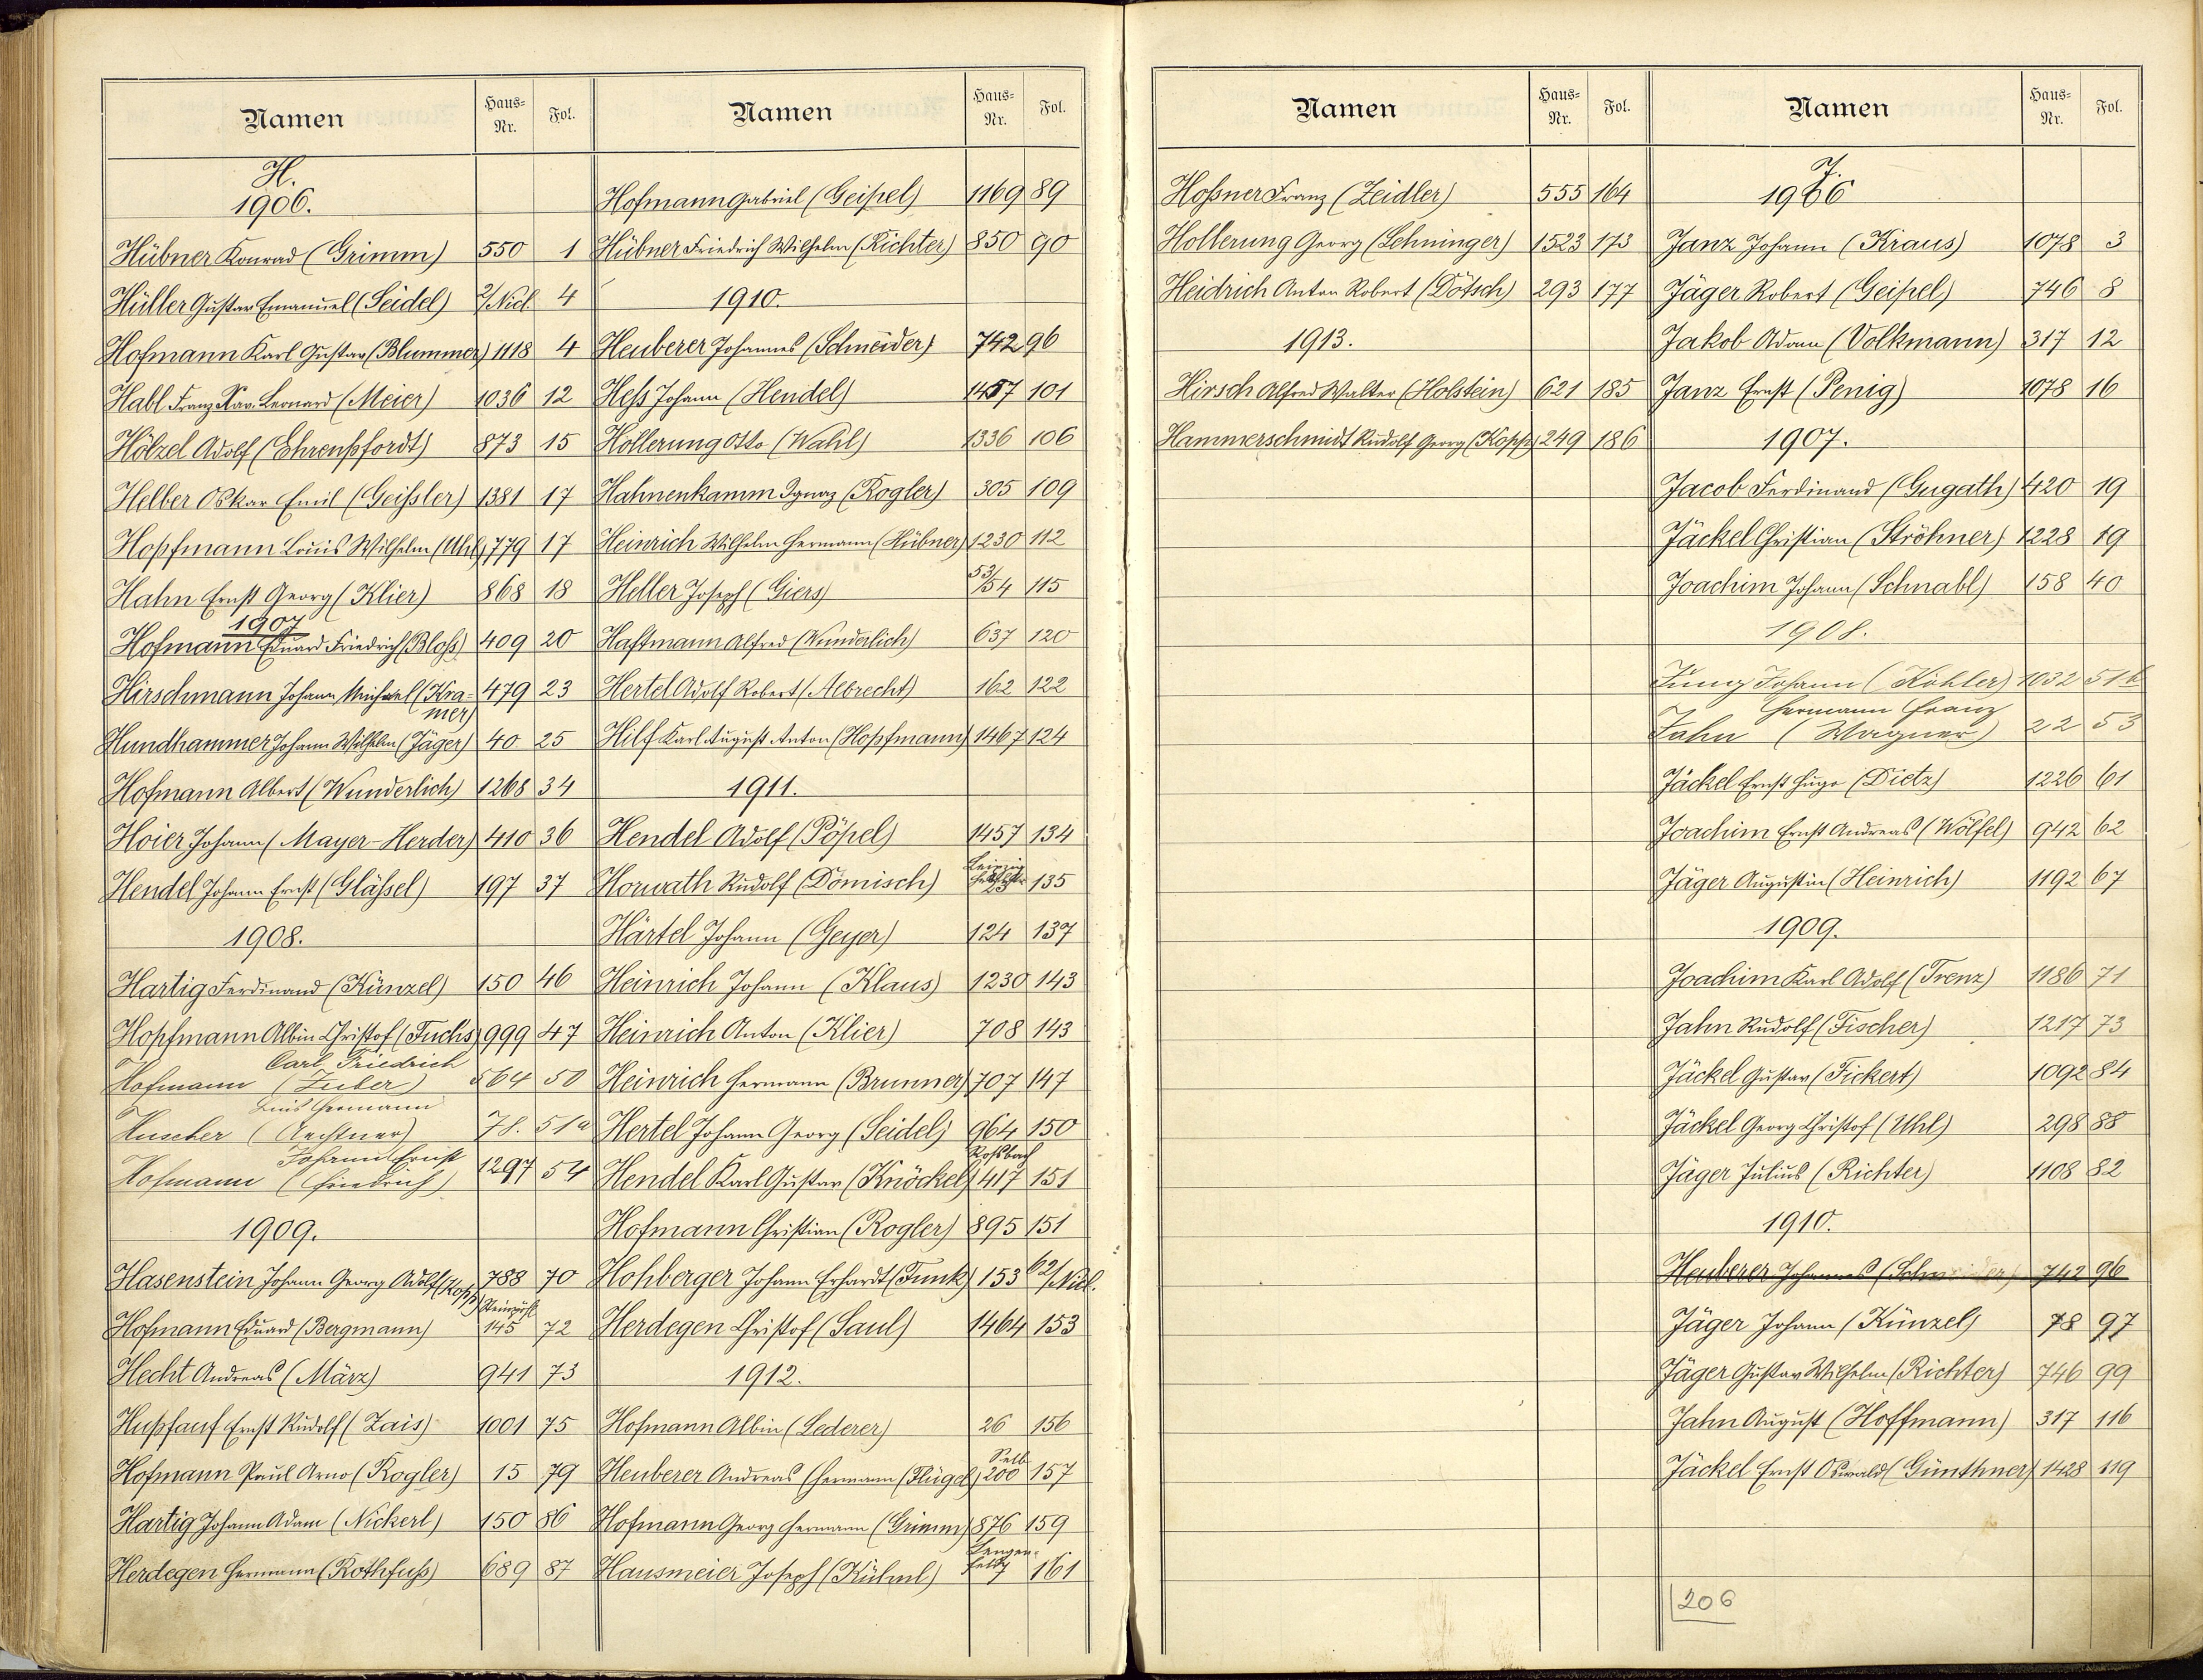 Namen Haus-Nr. Fol.
H.
1906.
Hübner Konrad (Grimm) 550 1
Hüller Gustav Emanuel (Seidel) 2/Nid. 4
Hofmann Karl Gustav (Blummer) 1118 4
Habl Franz Xav. Leonard (Meier) 1036 12
Hölzel Adolf (Ehrenpfordt) 873 15
Helber Oskar Emil (Geißler) 1381 17
Hopfmann Louis Wilhelm (Uhl) 779 17
Hahn Ernst Georg (Klier) 868 18
1907
Hofmann Eduard Friedrich (Bloß) 409 20
Hirschmann Johann Michael (Kra- 479 23
mer)
Hundhammer Johann Wilhelm (Jäger) 40 25
Hofmann Albert (Wunderlich) 1268 34
Hoier Johann (Mayer-Herder) 410 36
Hendel Johann Ernst (Gläßel) 197 37
1908.
Hartig Ferdinand (Künzel) 150 46
Hopfmann Albin Christof (Fuchs) 999 47
Carl Friedrich
Hofmann (Zuber) 564 50
Luis Hermann
Huscher (Aechtner) 78. 51a
Johann Ernst
Hofmann (Friedrich) 1297 54
1909.
Hasenstein Johann Georg Adolf (Kopp) 788 70
Steinpöhl
Hofmann Eduard (Bergmann) 145 72
Hecht Andreas (März) 941 73
Hupfauf Ernst Rudolf (Zais) 1001 75
Hofmann Paul Arno (Rogler) 15 79
Hartig Johann Adam (Nickerl) 150 86
Herdegen Hermann (Rothfuß) 689 87
Namen Haus-Nr. Fol.
Hofmann Gabriel (Geipel) 1169 89
Hübner Friedrich Wilhelm (Richter) 850 90
1910.
Heuberer Johannes (Schneider) 742 96
Heß Johann (Hendel) 1457 101
Hollerung Otto (Wahl) 1336 106
Hahnenkamm Ignaz (Rogler) 305 109
Heinrich Wilhelm Hermann (Hübner) 1230 112
Heller Joseph (Giers) 53/54 115
Haftmann Alfred (Wunderlich) 637 120
Hertel Adolf Robert (Albrecht) 162 122
Hilf Karl August Anton (Hopfmann) 1467 124
1911.
Hendel Adolf (Pöpel) 1457 134
Leipzig
Horwath Rudolf (Dömisch) 135
Härtel Johann (Geyer) 124 137
Heinrich Johann (Klaus) 1230 143
Heinrich Anton (Klier) 708 143
Heinrich Hermann (Brunner) 707 147
Hertel Johann Georg (Seidel) 964 150
Roßbach
Hendel Karl Gustav (Knöckel) 417 151
Hofmann Christian (Rogler) 895 151
Hohberger Johann Erhardt (Funk) 153 62/Nid.
Herdegen Christof (Saul) 1464 153
1912.
Hofmann Albin (Lederer) 26 156
Selb
Heuberer Andreas Hermann (Flügel) 200 157
Hofmann Georg Hermann (Grimm) 876 159
Lengen-
Hausmeier Joseph (Kühnl) feld 7 161
Namen Haus-Nr. Fol.
Hoßner Franz (Zeidler) 555 164
Hollerung Georg (Lehninger) 1523 173
Heidrich Anton Robert (Dötsch) 293 177
1913.
Hirsch Alfred Walter (Holstein) 621 185
Hammerschmidt Rudolf Georg (Kopp) 249 186
Namen Haus-Nr. Fol.
J.
1906
Janz Johann (Kraus) 1078 3
Jäger Robert (Geipel) 746 8
Jakob Adam (Volkmann) 317 12
Janz Ernst (Penig) 1078 16
1907.
Jacob Ferdinand (Gugath) 420 19
Jäckel Christian (Ströhner) 1228 19
Joachim Johann (Schnabl) 158 40
1908.
Jung Johann (Köhler) 1032 51b
Hermann Franz
Jahn (Wagner) 22 53
Jäckel Ernst Hugo (Dietz) 1226 61
Joachim Ernst Andreas (Wölfel) 942 62
Jäger Augustin (Heinrich) 1192 67
1909.
Joachim Karl Adolf (Trenz) 1186 71
Jahn Rudolf (Fischer) 1217 73
Jäckel Gustav (Fickert) 1092 84
Jäckel Georg Christof (Uhl) 298 88
Jäger Julius (Richter) 1108 82
1910.
Heuberer Johannes (Schneider) 742 96
Jäger Johann (Künzel) 78 97
Jäger Gustav Wilhelm (Richter) 746 99
Jahn August (Hoffmann) 317 116
Jäckel Ernst Oswald (Günthner) 1428 119
206